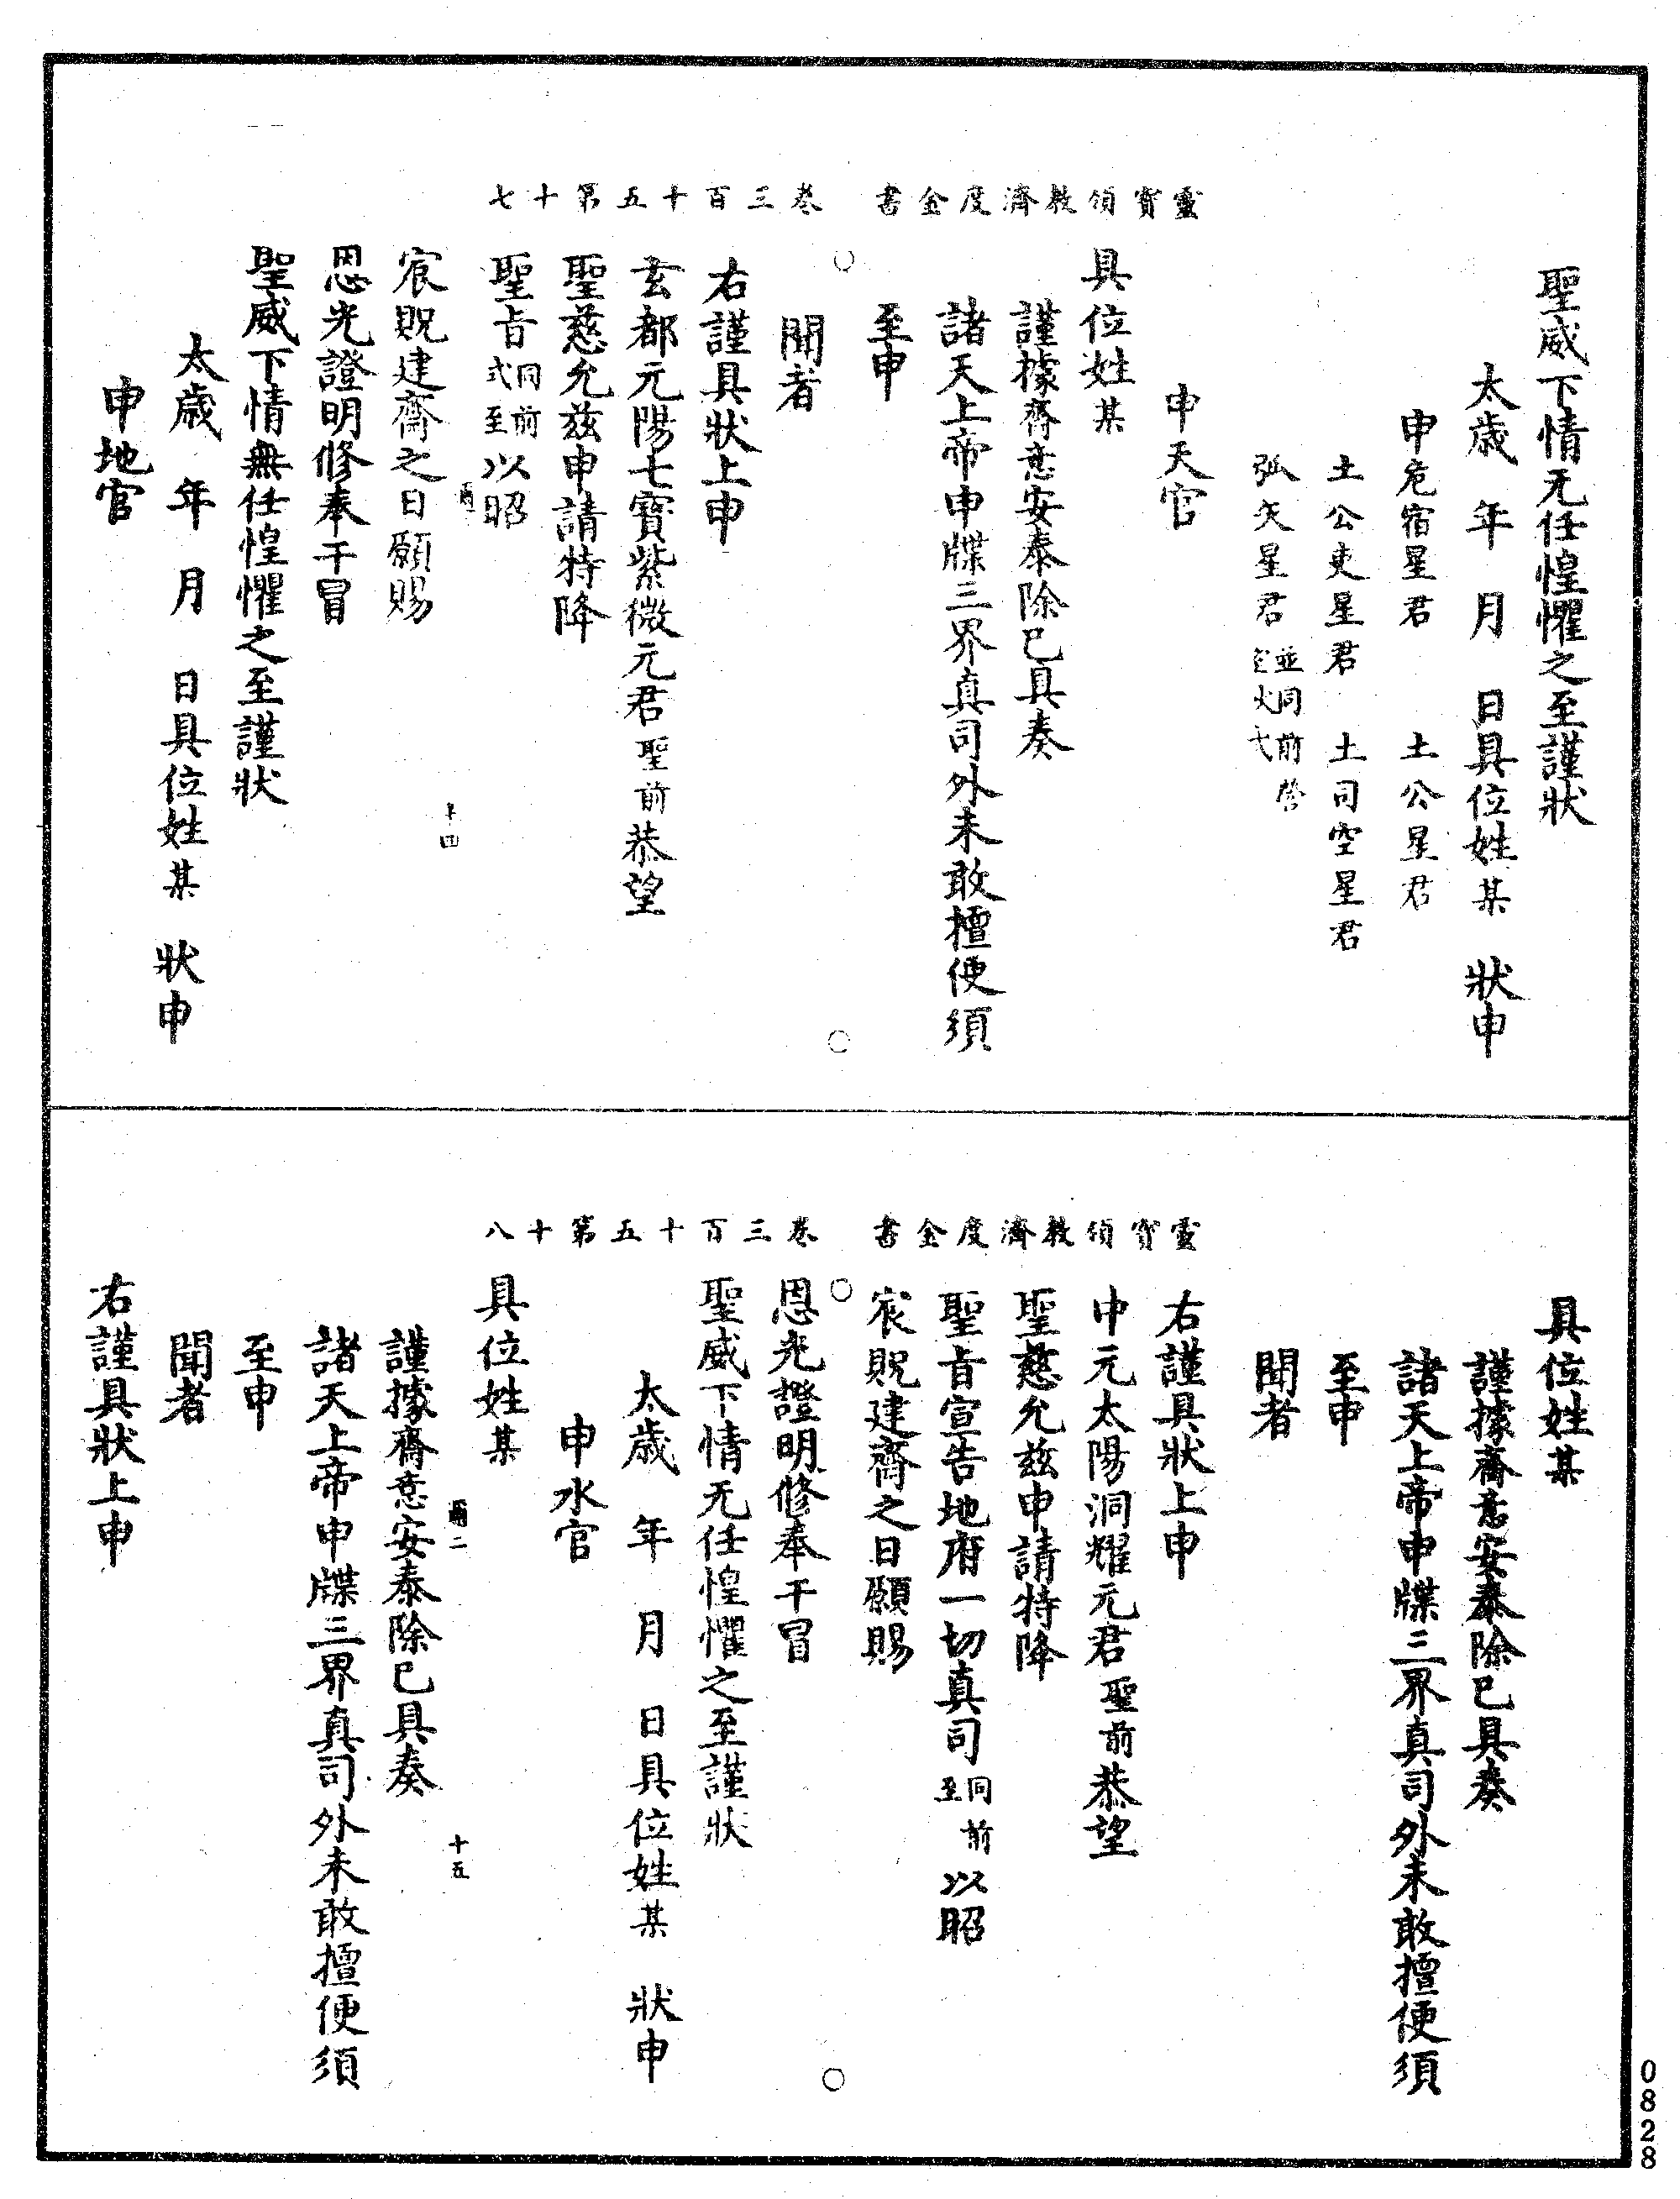 靈寶領教濟度金書　卷三百十五第十七
聖威下情无任惶懼之至謹狀
太歲　年　月　日具位姓某　狀申
申危宿星君　土公星君
土公吏星君　土司空星君
弧矢星君並同前啓
申天官
具位姓某
謹據齋意安泰除已具奏
諸天上帝申牒三界真司外未敢擅便須
至申
聞者
右謹具狀上申
玄都元陽七寶紫微元君聖前恭望
聖慈允茲申請特降
聖旨同前式至前以昭
十四
宸貺建齋之日願賜
恩光證明修奉干冒
聖威下情無任惶懼之至謹狀
太歲　年　月　日具位姓某　狀申
申地官
靈寶領教濟度金書　卷三百十五第十八
具位姓某
謹據齋意安泰除已具奏
諸天上帝申牒三界真司外未敢擅便須
至申
聞者
右謹具狀上申
中元太陽洞耀元君聖前恭望
聖慈允茲申請特降
聖旨宣告地府一切真司同前至以昭
宸貺建齋之日願賜
恩光證明修奉干冒
聖威下情无任惶懼之至謹狀
太歲　年　月　日具位姓某　狀申
申水官
具位姓某
二　十五
謹據齋意安泰除已具奏
諸天上帝申牒三界真司外未敢擅便須
至申
聞者
右謹具狀上申
0828